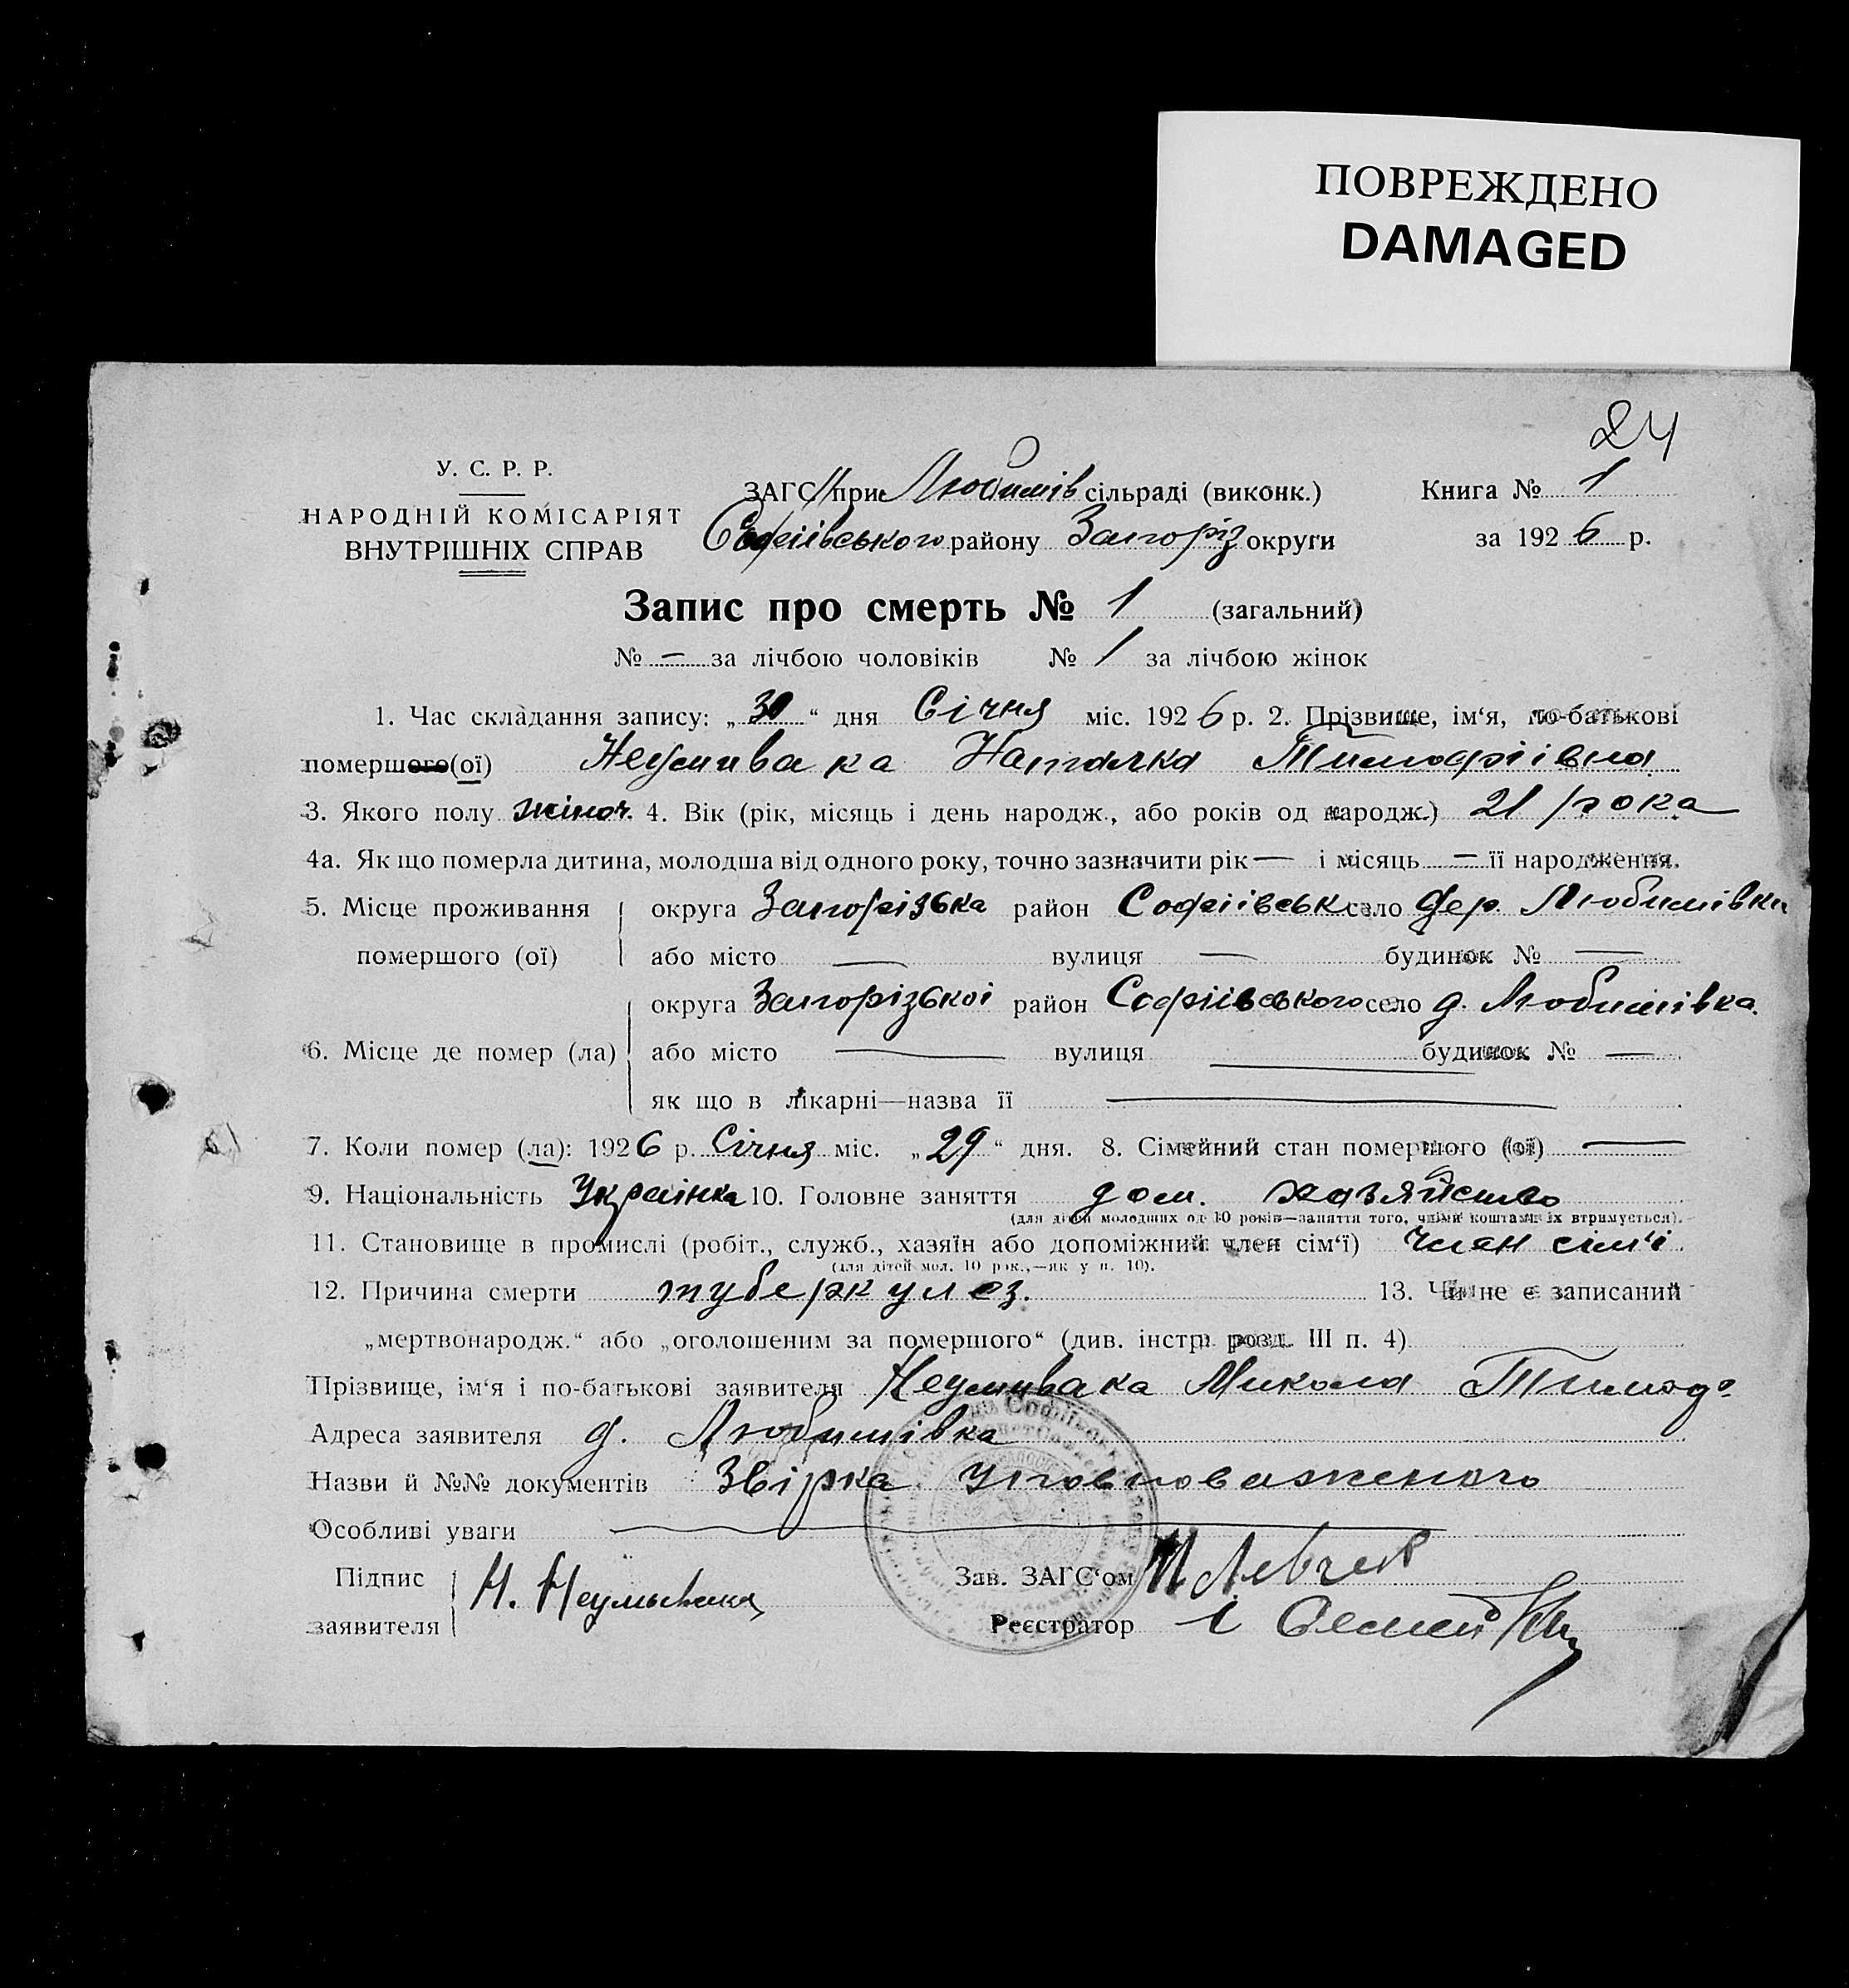 ПОВРЕЖДЕНО
DAMAGED
24
У. С. Р. Р.
НАРОДНІЙ КОМІСАРІЯТ
ВНУТРІШНІХ СПРАВ
ЗАГС при Любимів сільраді (виконк.)
Софіівського району Запоріз округи
Книга № 1
за 1926 р.
Запис про смерть № 1 (загальний)
№ — за лічбою чоловіків № 1 за лічбою жінок
1. Час складання запису: „30“ дня Січня міс. 1926 р. 2. Прізвище, ім‘я, по-батькові
помершого(ої) Неумивака Наталка Тимофіівна
3. Якого полу жіноч. 4. Вік (рік, місяць і день народж., або років од народж.) 21 рока
4а. Як що померла дитина, молодша від одного року, точно зазначити рік — і місяць — її народження.
5. Місце проживання округа Запорізька район Софіівськ село дер. Любимівки
помершого (ої) або місто — вулиця — будинок № —
округа Запорізькоі район Софіівського село д. Любимівка.
6. Місце де помер (ла) або місто — вулиця — будинок № —
як що в лікарні—назва її —
7. Коли помер (ла): 1926 р. Січня міс. „29“ дня. 8. Сімейний стан помершого (ої) —
9. Національність Украінка 10. Головне заняття дом. хазяйство
(для дітей молодших од 10 років—заняття того, чиїми коштами їх втримується).
11. Становище в промислі (робіт., служб., хазяїн або допоміжний член сім‘ї) член сім‘і
(для дітей мол. 10 рок.,—як у п. 10).
12. Причина смерти туберкулез. 13. Чи не є записаний
„мертвонародж.“ або „оголошеним за помершого“ (див. інстр. розд. III п. 4)
Прізвище, ім‘я і по-батькові заявителя Неумивака Микола Тимоф.
Адреса заявителя д. Любимівка
Назви й №№ документів Звірка Уповноваженого
Особливі уваги —
Підпис
заявителя Н. Неумывака
Зав. ЗАГС‘ом
Реєстратор